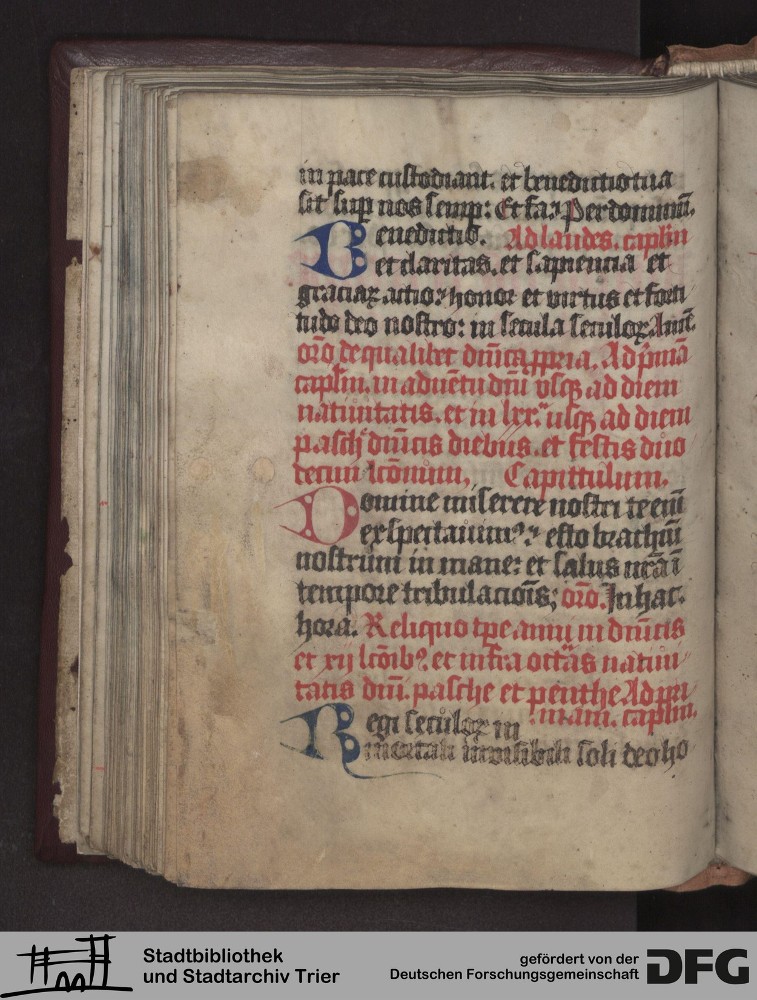 in pace custodiant. et benedictio tua
sit sup nos semp: Et fa. Per dominum.
Benedictio. Ad laudes. caplm
et claritas. et sapiencia et
graciaꝝ actio. honor et virtus et forti
tudo deo nostro: in secula seculoꝝ Amē.
oro de qualibet dnica ppria. Ad pmā
caplm. in aduētu dni vsqꝫ ad diem
natiuitatis. et in lxx. usqꝫ ad diem
pasch dnicis diebus. et festis duo
decim lcōnum. Capittulum.
Domine miserere nostri te enī
exspectauimꝰ. esto brachiū
nostrum in mane: et salus nrā ī
tempore tribulacōis; oro. In hac
hora. Reliquo tpe anni in dnicis
et xij lcōibꝰ. et infra octās natiui
tatis dni. pasche et penthe Ad pri
mam. caplm.
Regi seculoꝝ in
mortali inuisibili soli deo ho
Stadtbibliothek
und Stadtarchiv Trier
gefördert von der
Deutschen Forschungsgemeinschaft
DFG